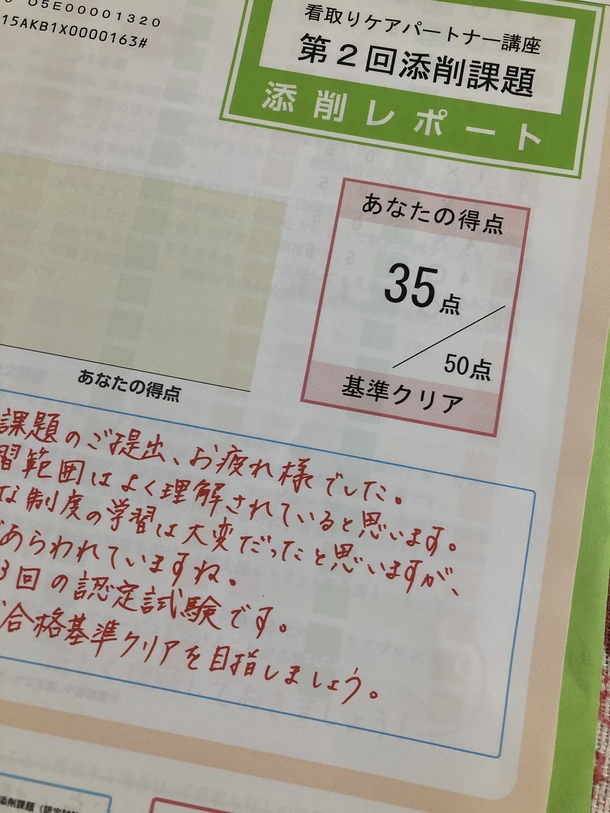 05E00001320
15AKB1X0000163#
看取りケアパートナー講座
第2回添削課題
添削レポート
あなたの得点
35点
50点
基準クリア
あなたの得点
課題のご提出、お疲れ様でした。
習範囲はよく理解されていると思います。
な制度の学習は大変だったと思いますが、
あらわれていますね。
3回の認定試験です。
合格基準クリアを目指しましょう。
添削課題